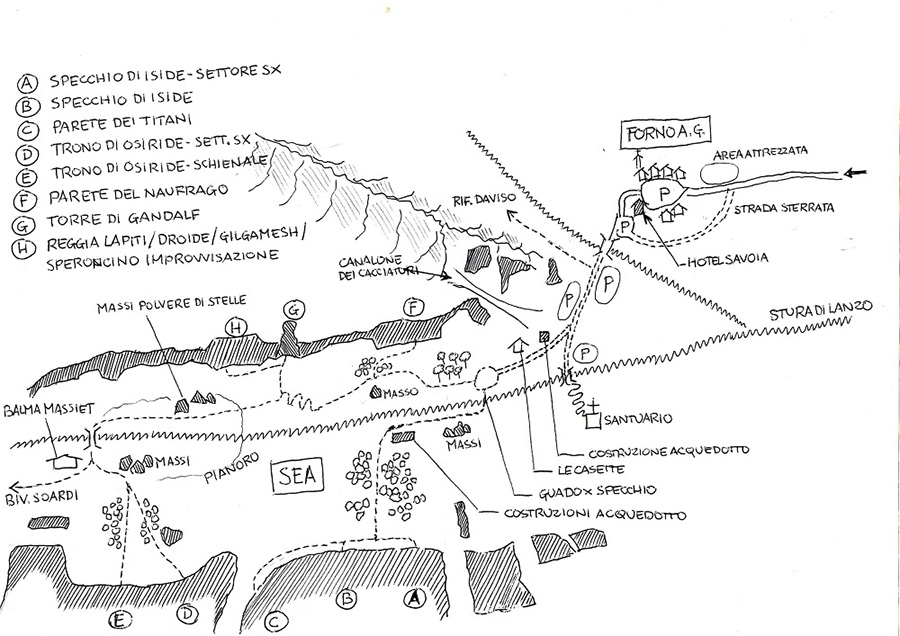 A SPECCHIO DI ISIDE-SETTORE SX
B SPECCHIO DI ISIDE
C PARETE DEI TITANI
D TRONO DI OSIRIDE-SETT.SX
E TRONO DI OSIRIDE-SCHIENALE
F PARETE DEL NAUFRAGO
G TORRE DI GANDALF
H REGGIA LAPITI/DROIDE/GILGAMESH/
SPERONCINO IMPROVVISAZIONE
FORNO A.G.
AREA ATTREZZATA
P
STRADA STERRATA
P
HOTEL SAVOIA
RIF. DAVISO
CANALONE
DEI CACCIATORI
P
P
STURA DI LANZO
MASSI POLVERE DI STELLE
G
F
H
P
MASSO
BALMA MASSIET
SANTUARIO
MASSI
COSTRUZIONE ACQUEDOTTO
MASSI
PIANORO
SEA
LE CASETTE
BIV. SOARDI
GUADO X SPECCHIO
COSTRUZIONI ACQUEDOTTO
E
D
C
B
A